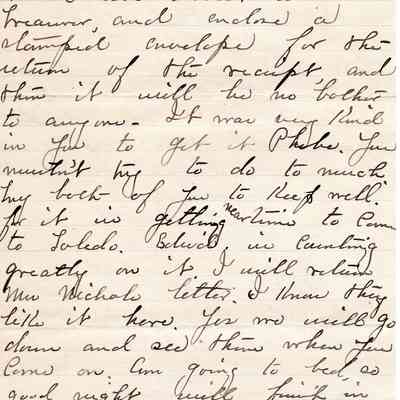 treasurer, and enclose a
stamped envelope for the
return of the receipt, and
then it will be no bother
to anyone - It was very kind
in you to get it Phebe. You
mustn't try to do to much,
try both of you to keep well.
for it is getting near time to come
to Toledo. Edward, is counting
greatly on it. I will return
Mrs Nichols letter. I know they
like it here. Yes we will go
down and see them when you
come on. Am going to bed, so
good night will finish in